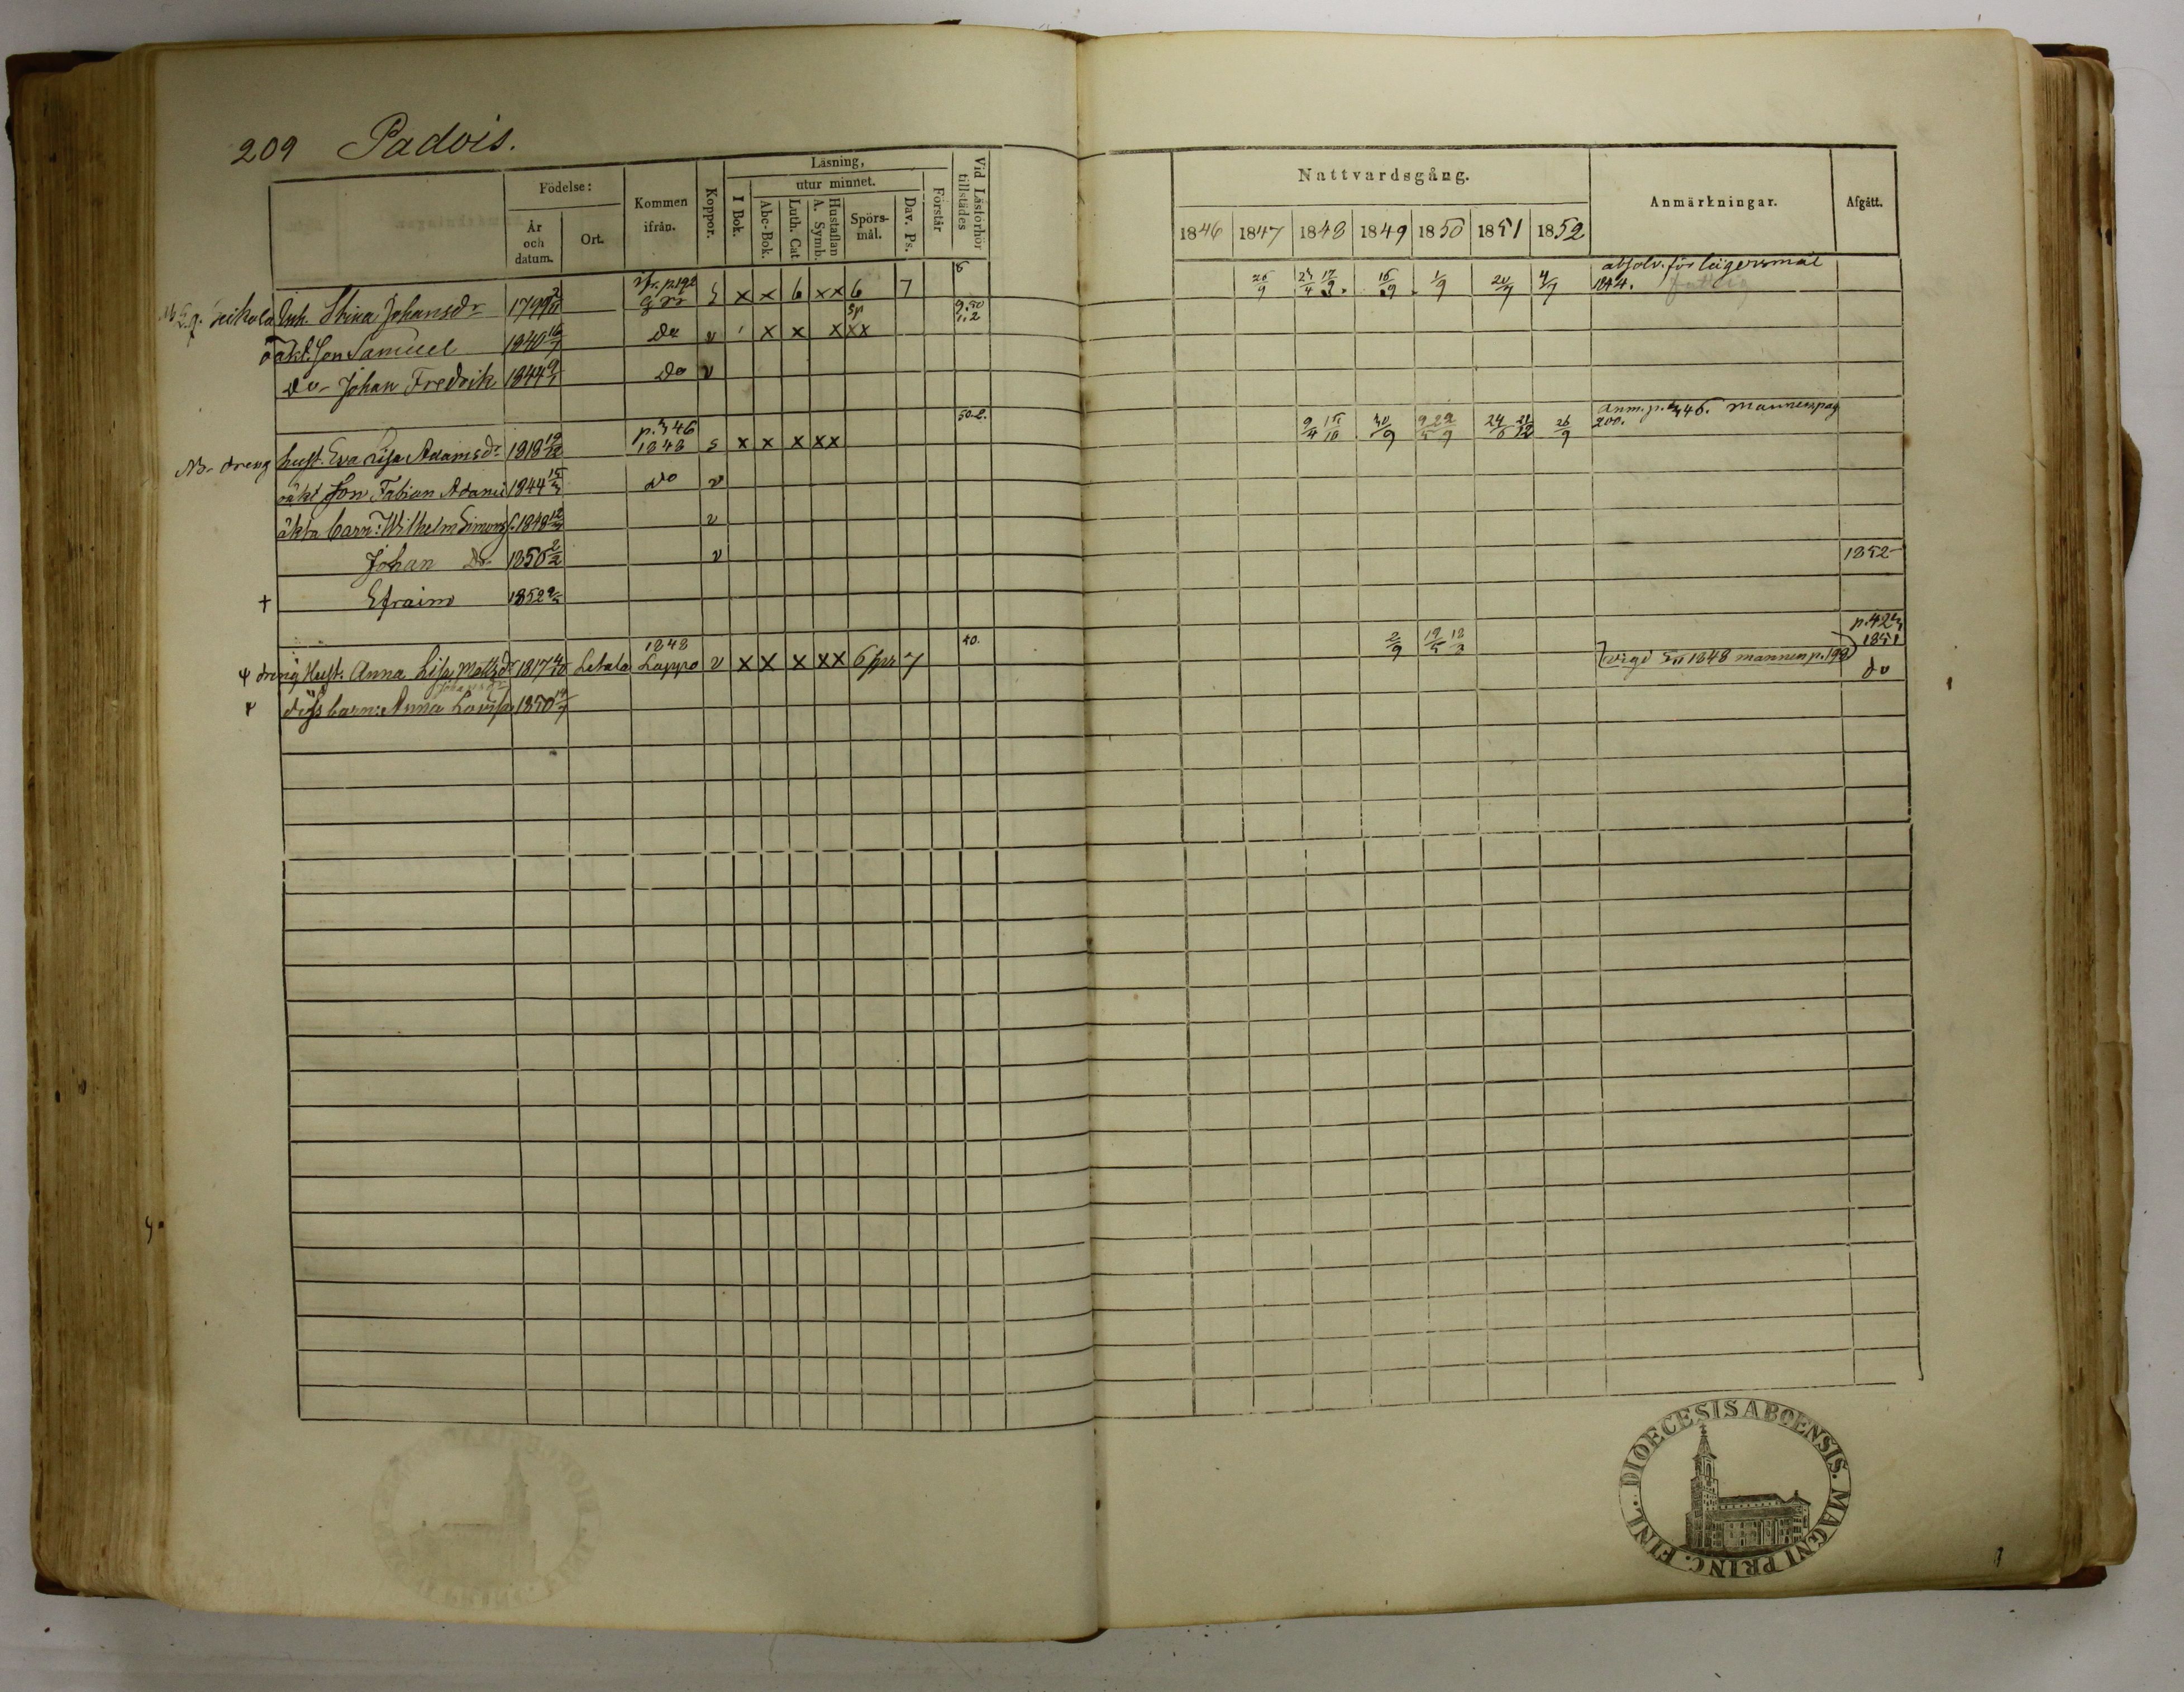 209 Padois.
Födelse: År och datum. Ort. Kommen ifrån. Koppor. Läsning, I Bok. utur minnet. Abc-Bok. Luth. Cat Hustaflan A. Symb. Spörsmål. Dav. Ps. Förstår Vid Läsförhör tillstädes
Nattvardsgång. 1846 1847 1848 1849 1850 1851 1852 Anmärkningar. Afgått.
Inh. Stina Johansdr 1799 p.192 x x 6 x x 6 7 6 25/9 17/9 16/9 1/9 20/7 4/7 absolv. för lägersmål 1844. fattig
oäkt. Son Samuel 1840 do v x x x x x
do Johan Fredrik 1844 do v
Nb. dreng hust. Eva Lisa Adamsdr 1818 p. 346 1848 s x x x x x 50.2. 9/4 15/10 30/9 9/5 22/9 24/6 21/12 26/9 Anm. p. 346. mannen pag 200.
oäkt Son Fabian Adami 1844 do v
äkta barn: Wilhelm Simonss. 1848 v
Johan do 1850 2/2 v 1852
† Efraim 1852
dreng Hust. Anna Lisa Mattsdr 1817 Letala 1848 Loppo v x x x x x 6 7 50. 2/9 19/5 18/8 vigd 1848 mannen p. 198 p. 423 1851
dess barn: Anna Lovisa 1850 do
FINL. DIOECESIS ABOENSIS. MAGNI PRINC.